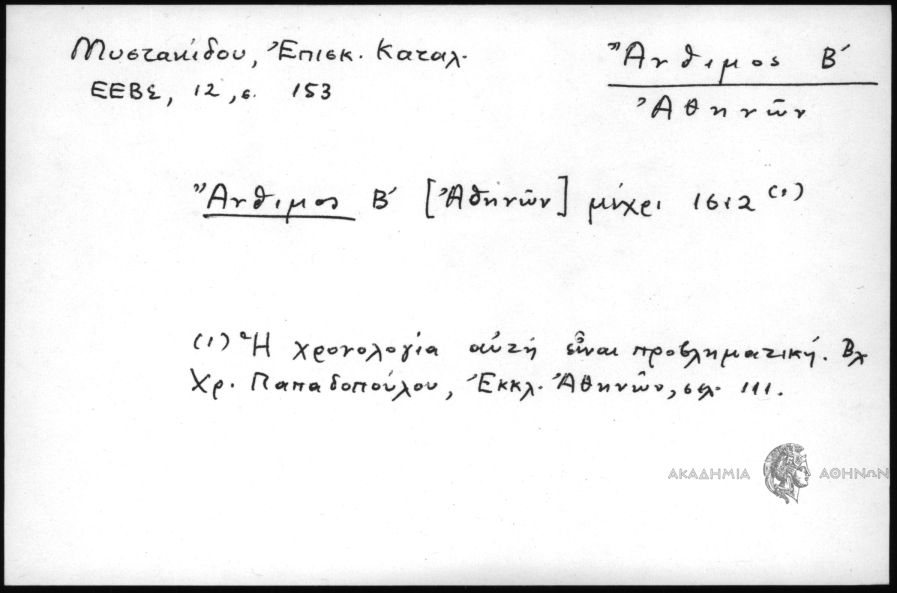 Μυστακίδου, Ἐπισκ. Καταλ.
ΕΕΒΣ, 12, σ. 153
Ἄνθιμος Β´
Ἀθηνῶν
Ἄνθιμος Β´ [Ἀθηνῶν] μέχρι 1612 (1)
(1) Ἡ χρονολογία αὐτή εἶναι προβληματική. Βλ
Χρ. Παπαδοπούλου, Ἐκκλ. Ἀθηνῶν, σελ. 111.
ΑΚΑΔΗΜΙΑ ΑΘΗΝΩΝ